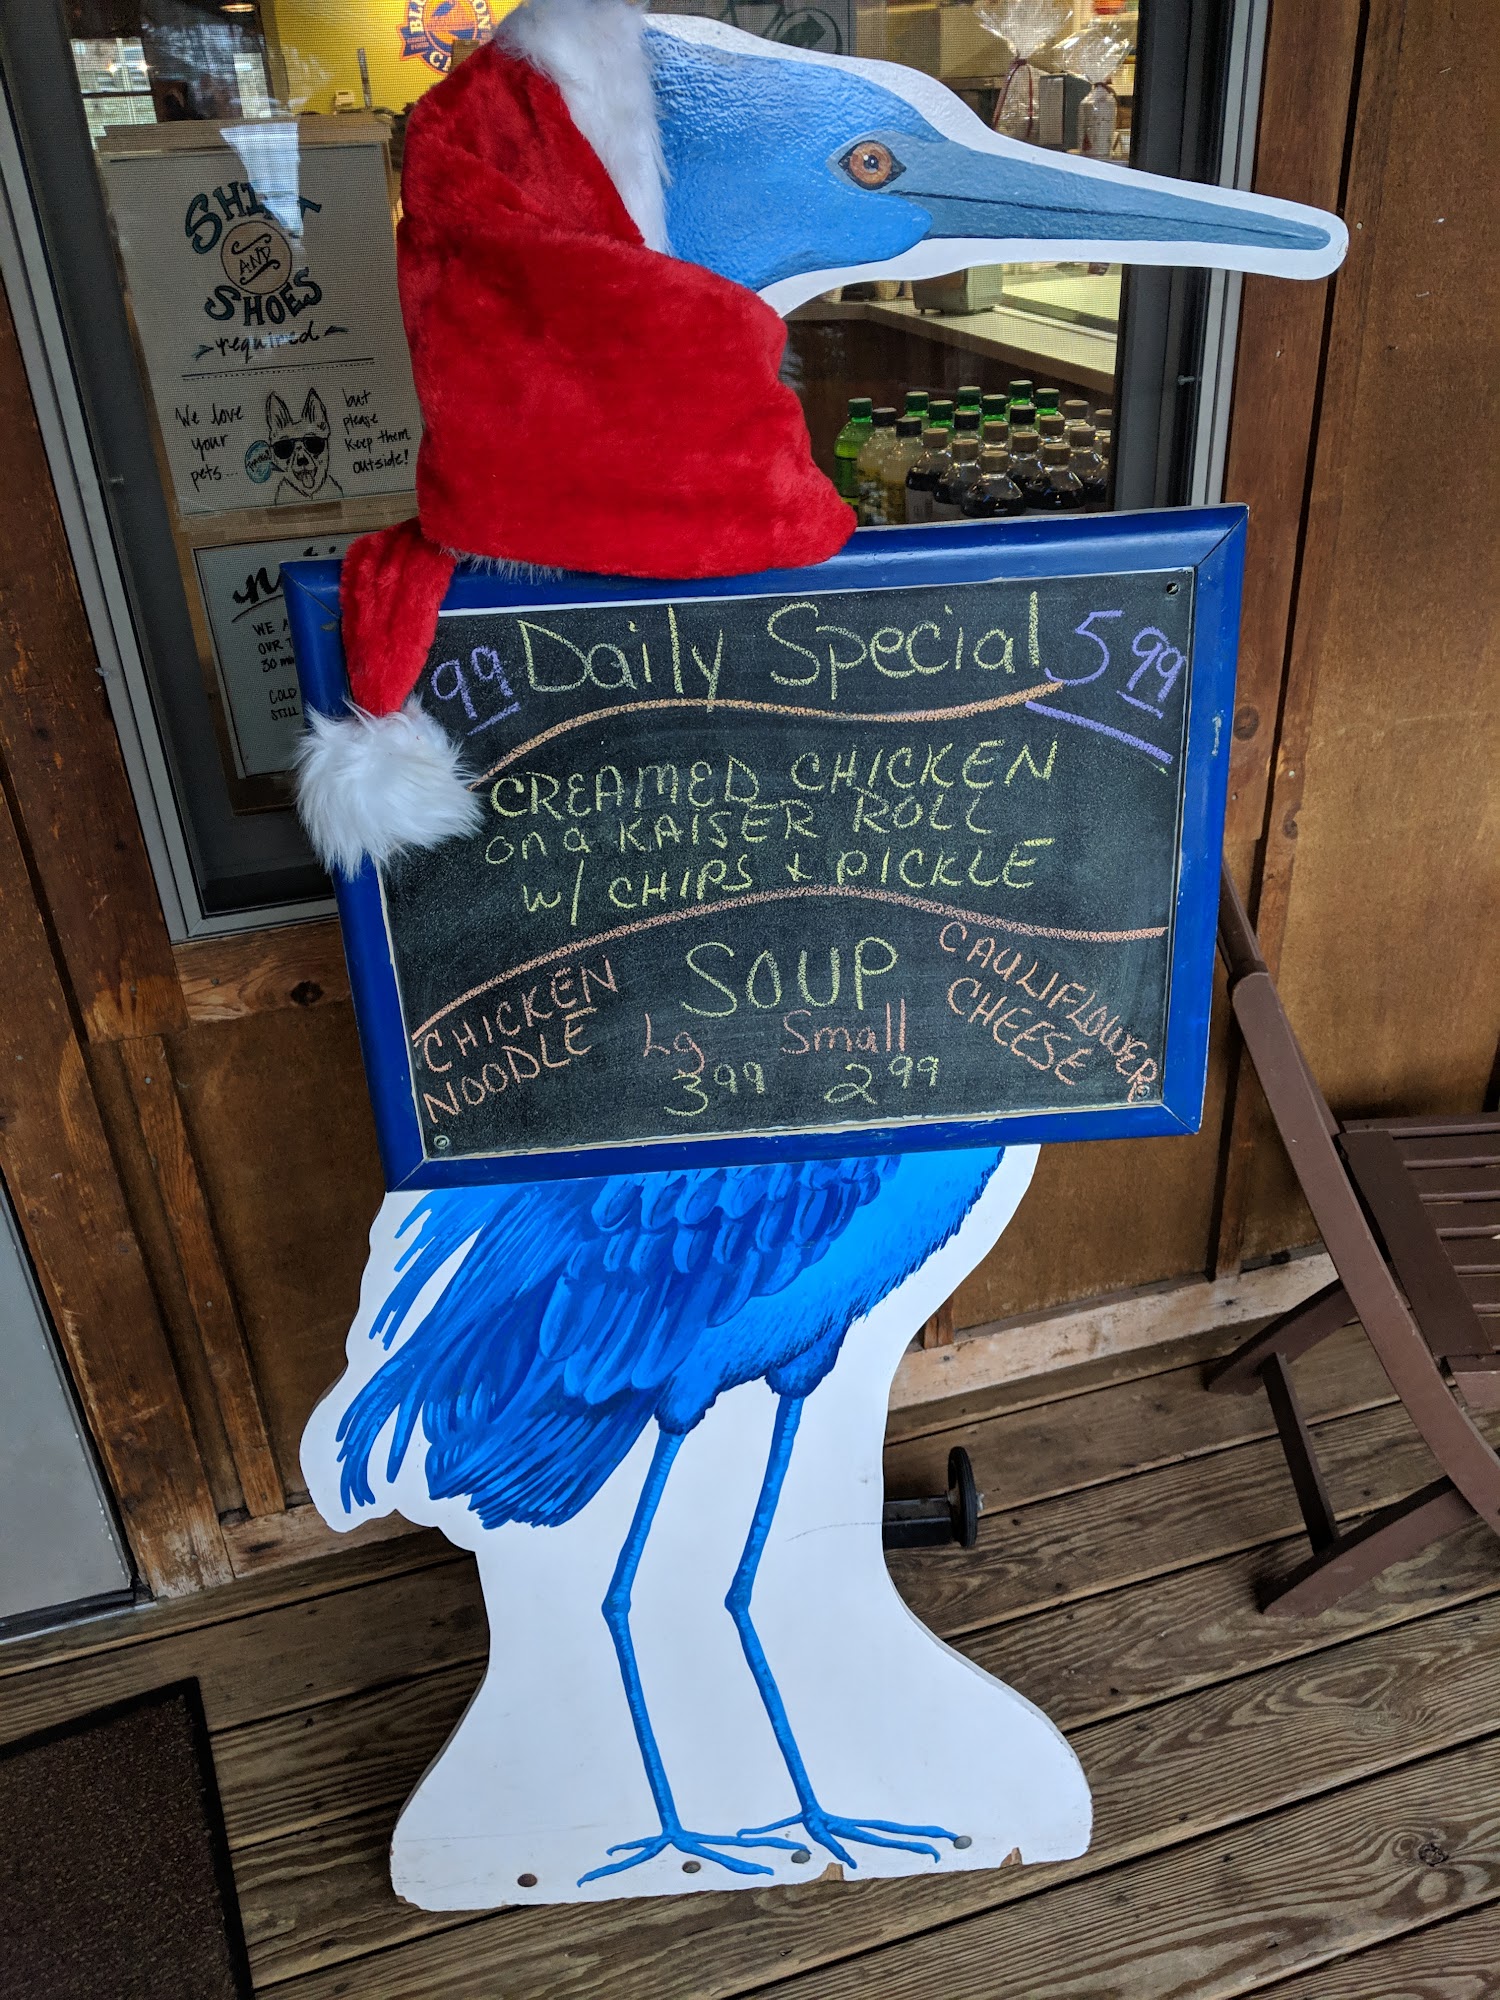 SHI
AND
SHOES
required
We love
your
pets...
but
please
keep them
outside!
WE
OUR
30
COLD
STILL
99 Daily Special 5 99
CREAMED CHICKEN
on a KAISER ROLL
w/ CHIPS & PICKLE
SOUP
CHICKEN
NOODLE
Lg Small
3 99 2 99
CAULIFLOWER
CHEESE